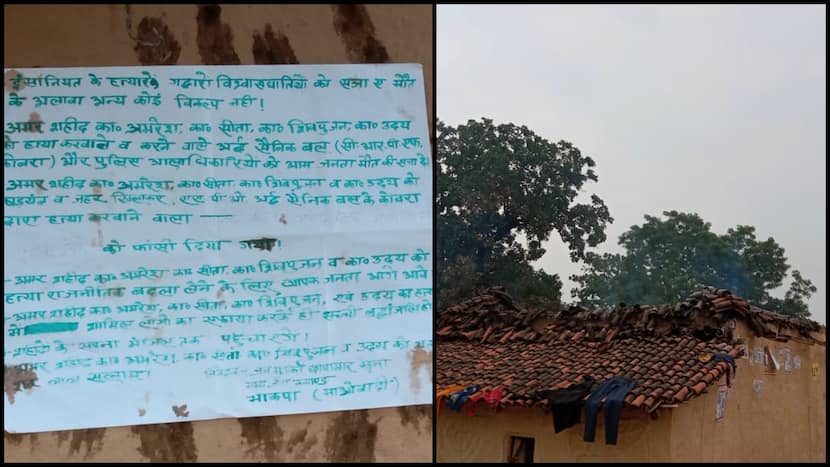 इंसानियत के हत्यारे गद्दारो विश्वासघातियों को सजा ए मौत
के अलावा अन्य कोई विकल्प नहीं!
अमर शहीद का० अमरेश, का० सीता, का० शिवपुजन, का० उदय
को हत्या करवाने व करने वाले अर्द्ध सैनिक बल (सी आर पी एफ,
कोबरा) और पुलिस आलाधिकारियों को आम जनता मौत की सजा दें।
अमर शहीद का० अमरेश, का० सीता, का० शिवपुजन व का० उदय को
षडयंत्र व जहर खिलाकर, एस पी ओ अर्द्ध सैनिक बल के कोबरा
द्वारा हत्या करवाने वाला —
को फांसी दिया गया!
- अमर शहीद का० अमरेश, का० सीता, का० शिवपुजन व का० उदय को
हत्या राजनीतिक बदला लेने के लिए व्यापक जनता आगे आवें
- अमर शहीद का० अमरेश, का० सीता, का० शिवपुजन, एवं उदय का हत्या
में शामिल लोगों का सफाया करके ही सच्ची श्रद्धांजलि हो
- शहीदों के अपना मंजिल तक पहुंचाएंगे!
अमर शहीद का० अमरेश, का० सीता का० शिवपुजन व उदय को
लाल सलाम!
निवेदक - जनमुक्ति छापामार सेना
भाकपा (माओवादी)